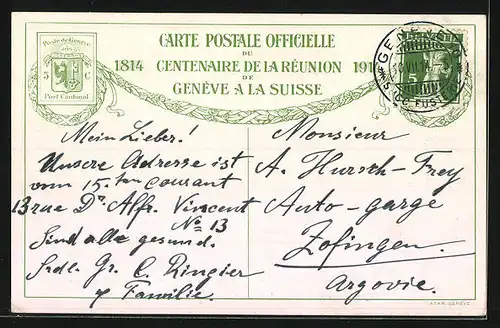 Poste de Genève
5 C
Port Cantonal
CARTE POSTALE OFFICIELLE
DU
1814 CENTENAIRE DE LA RÉUNION 191
DE
GENÈVE A LA SUISSE
GENÈVE
5
Mein Lieber!
Unsere Adresse ist
vom 15.ten courant
13 rue Dr. Alfr. Vincent
No 13
Sind alle gesund.
Srdl. Gr. C. Ringier
& Familie.
Monsieur
A. Hürsch-Frey
Auto-garge
Zofingen.
Argovie.
ATAR, GENÈVE